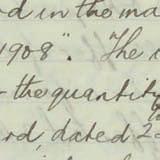 d in the ma
1908". The
the quantity
rd, dated 2